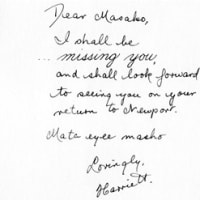 Dear Masako,
I shall be
... missing you,
and shall look forward
to seeing you on your
return to Newport.
Mate eyee masho
Lovingly,
Harriett.